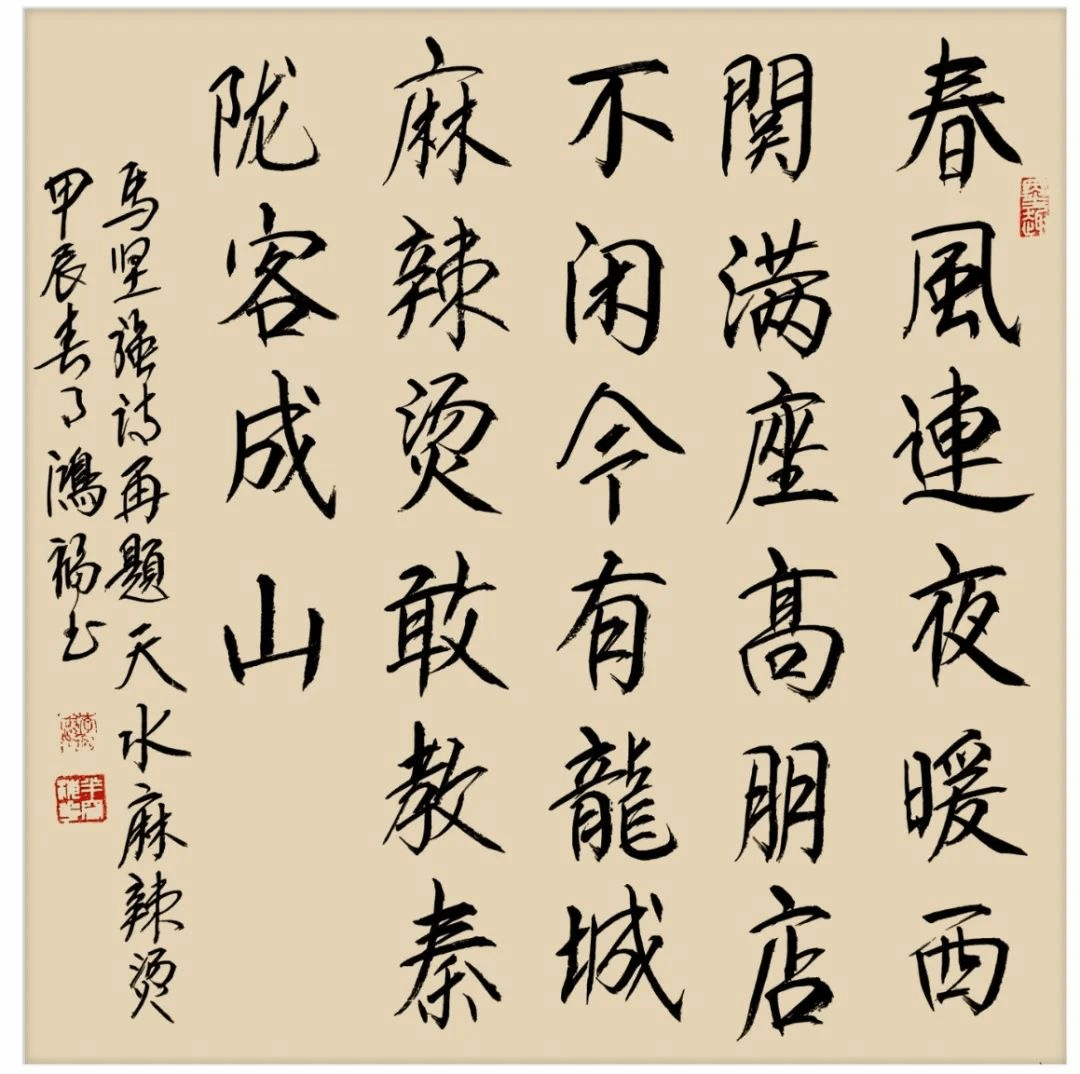 春風連夜暖西
関满座高朋店
不闲今有龍城
麻辣烫敢教秦
陇客成山
馬坚強诗再題天水麻辣烫
甲辰春月鴻福书